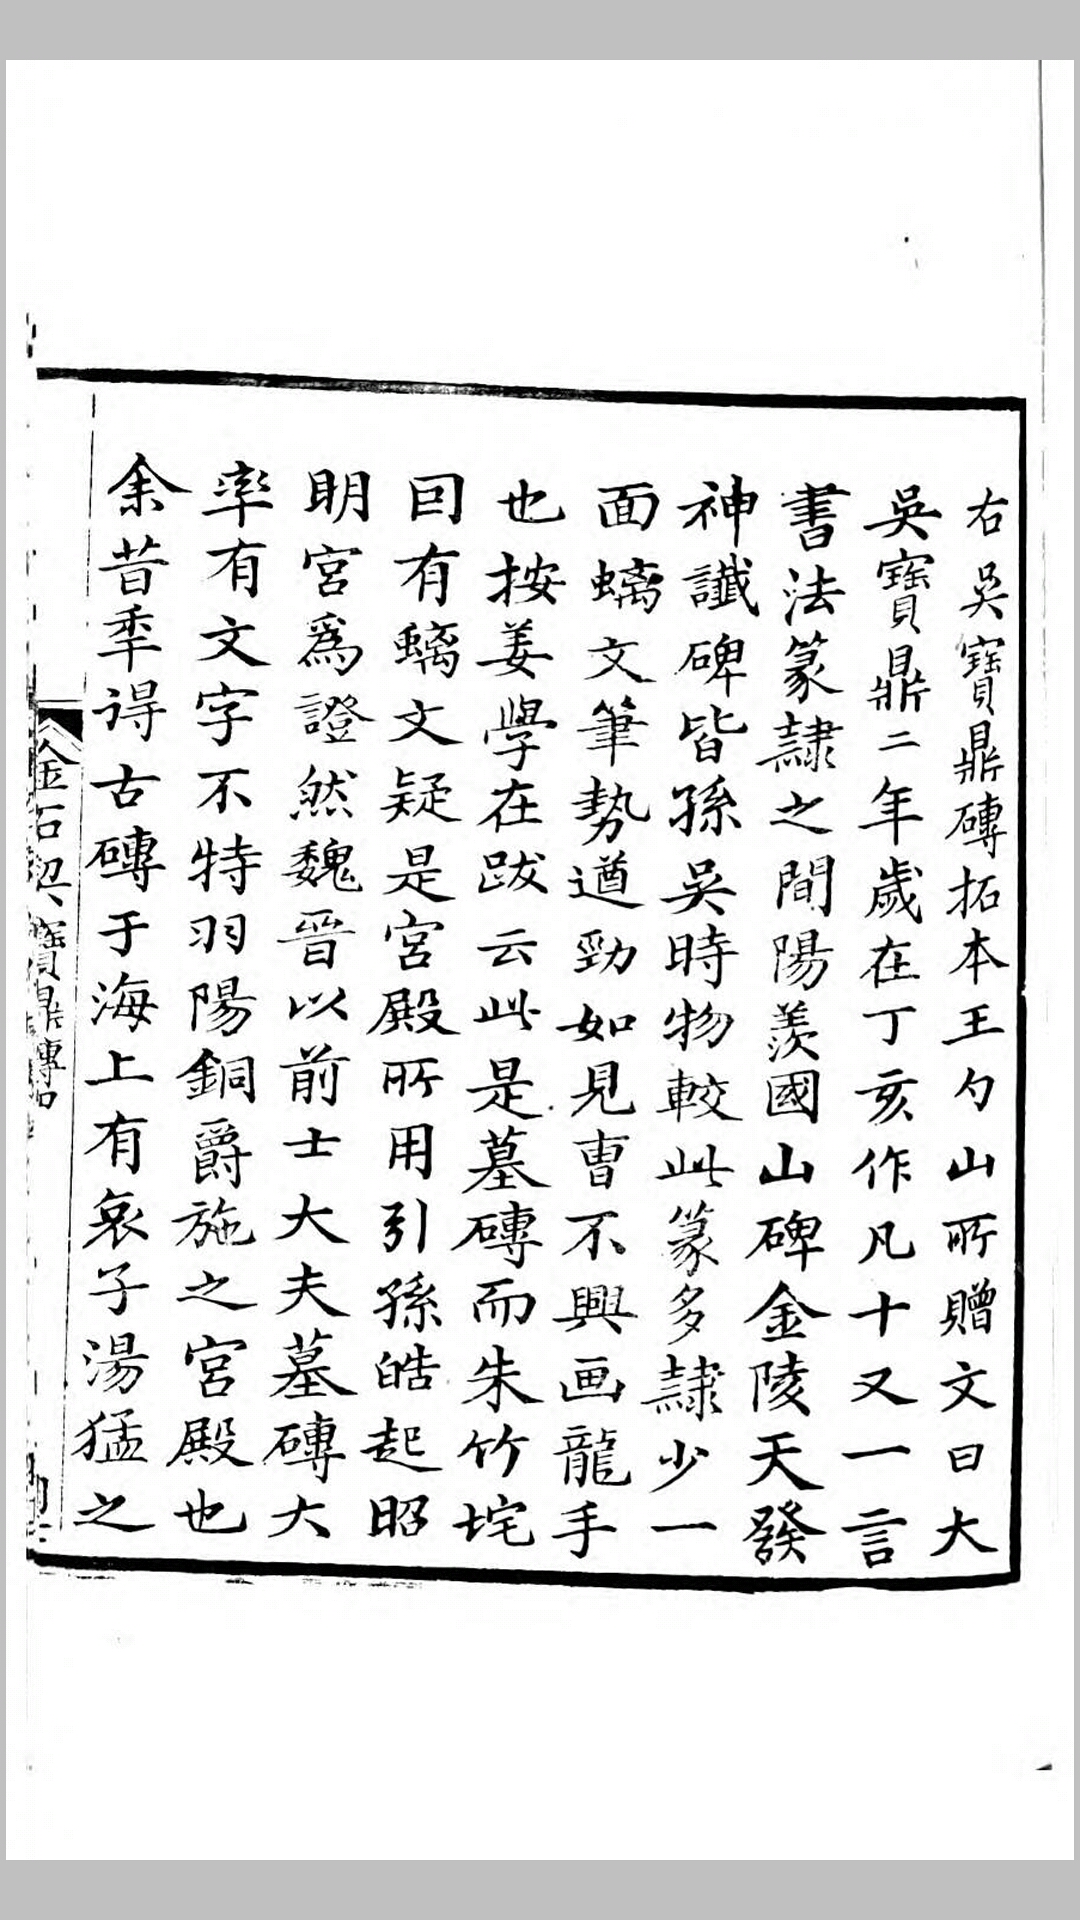 右吳寶鼎磚拓本王勺山所贈文曰大
吳寶鼎二年歲在丁亥作凡十又一言
書法篆隷之間陽羨國山碑金陵天發
神讖碑皆孫吳時物較此篆多隷少一
面螭文筆勢遒勁如見曹不興画龍手
也按姜學在跋云此是墓磚而朱竹垞
囙有螭文疑是宮殿所用引孫皓起昭
明宮為證然魏晉以前士大夫墓磚大
率有文字不特羽陽銅爵施之宮殿也
余昔秊得古磚于海上有哀子湯猛之
金石契 寶鼎磚